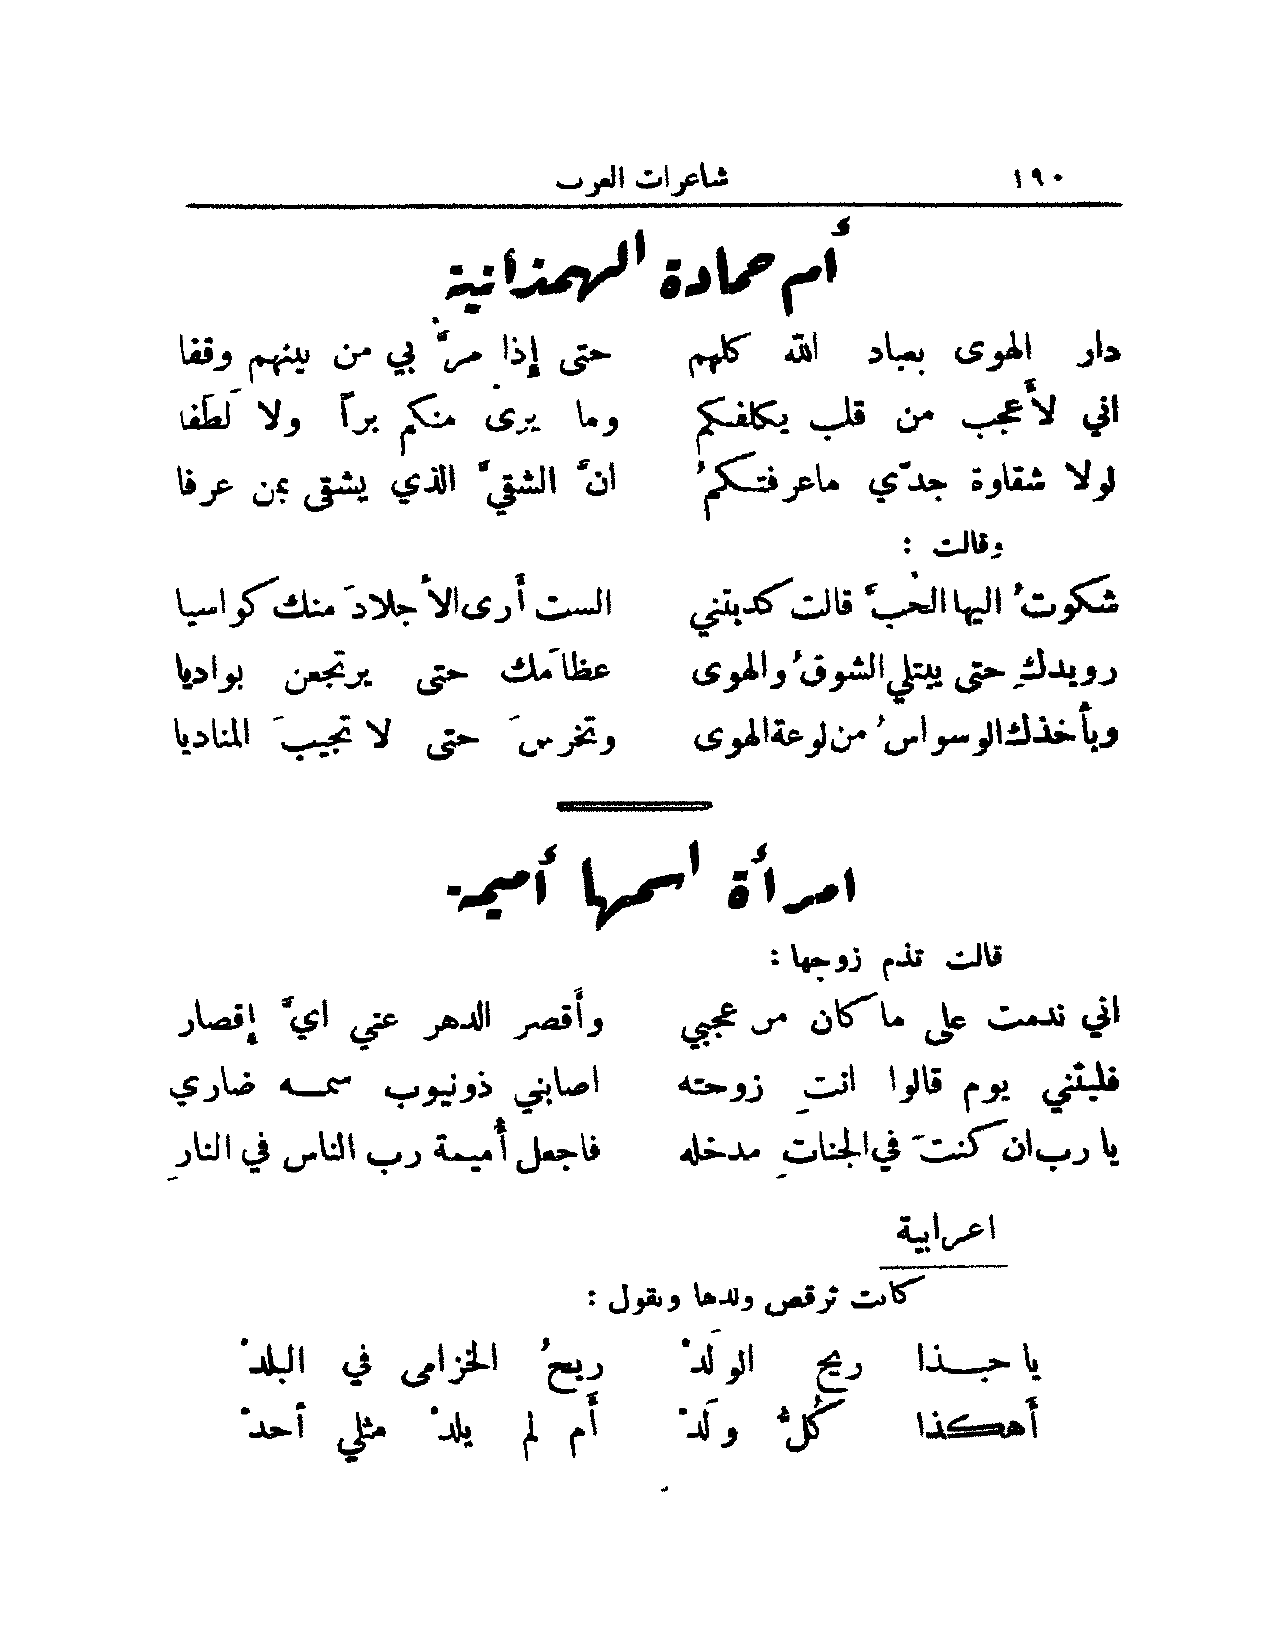 ١٩٠ شاعرات العرب
أم حمادة الهمذانية
دار الهوى بعباد الله كلهم حتى إذا مرَّ بي من بينهم وقفا
اني لأعجب من قلب يكلفكم وما يرى منكم براً ولا لَطَفا
لولا شقاوة جدّي ماعرفتكمُ انَّ الشقيَّ الذي يشقى بمن عرفا
وقالت :
شكوتُ اليها الحُبَّ قالت كذبتني الست أرى الأجلادَ منك كواسيا
رويدكِ حتى يبتلي الشوقُ والهوى عظامَك حتى يرتجعن بواديا
ويأخذك الوسواسُ من لوعة الهوى وتخرسَ حتى لا تجيبَ المناديا
امرأة اسمها أميمة
قالت تذم زوجها :
اني ندمت على ما كان من عجبي وأقصر الدهر عني ايَّ إقصار
فليتني يوم قالوا انتِ زوجته اصابني ذونيوب سمه ضاري
يا رب ان كنتَ في الجناتِ مدخله فاجعل أُميمة رب الناس في النارِ
اعرابية
كانت ترقص ولدها وتقول :
يا حبذا ريح الولَدْ ريحُ الخزامى في البلدْ
أهكذا كُلُّ ولَدْ أم لم يلدْ مثلي أحدْ